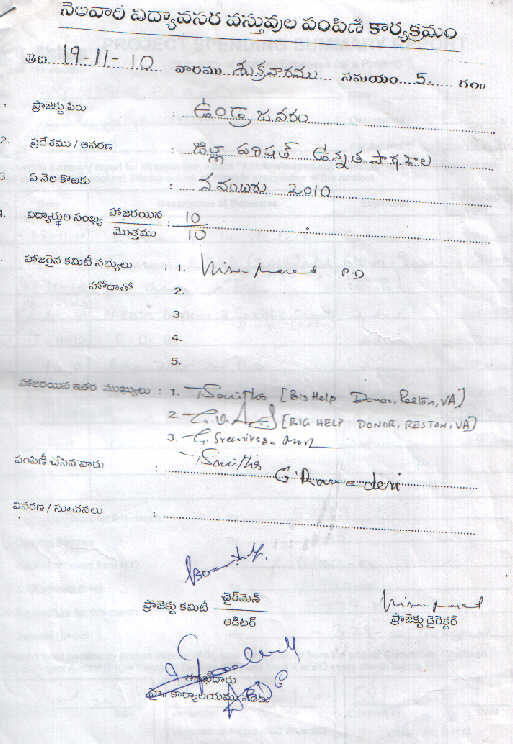 నెలవారీ విద్యావసర వస్తువుల పంపిణీ కార్యక్రమం
తేది 19-11-10 వారము శుక్రవారము సమయం 5 గం॥
ప్రాజెక్టు పేరు : ఉండ్రాజవరం
2. ప్రదేశము / ఆవరణ : జిల్లా పరిషత్ ఉన్నత పాఠశాల
3. ఏ నెల కొఱకు : నవంబరు 2010
4. విద్యార్థుల సంఖ్య హాజరయిన : 10
మొత్తము 10
హాజరైన కమిటీ సభ్యులు : 1. PD
2.
3.
4.
5.
హాజరయిన ఇతర ముఖ్యులు : 1. [BIG HELP Donor, Reston, VA]
2. [BIG HELP DONOR, RESTON, VA]
3. G. Sreenivasa
పంపిణీ చేసిన వారు :
వివరణ / సూచనలు :
ప్రాజెక్టు కమిటీ ఛైర్మెన్
ఆడిటర్
ప్రాజెక్టు డైరెక్టర్